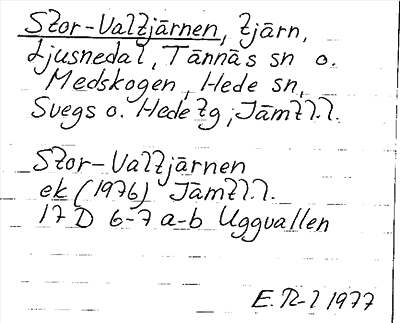 Stor-Valtjärnen, tjärn,
Ljusnedal, Tännäs sn o.
Medskogen, Hede sn,
Svegs o. Hede tg, Jämtl.l.
Stor-Valtjärnen
ek (1976) Jämtl.l.
17 D 6-7 a-b Uggvallen
E.R-l 1977